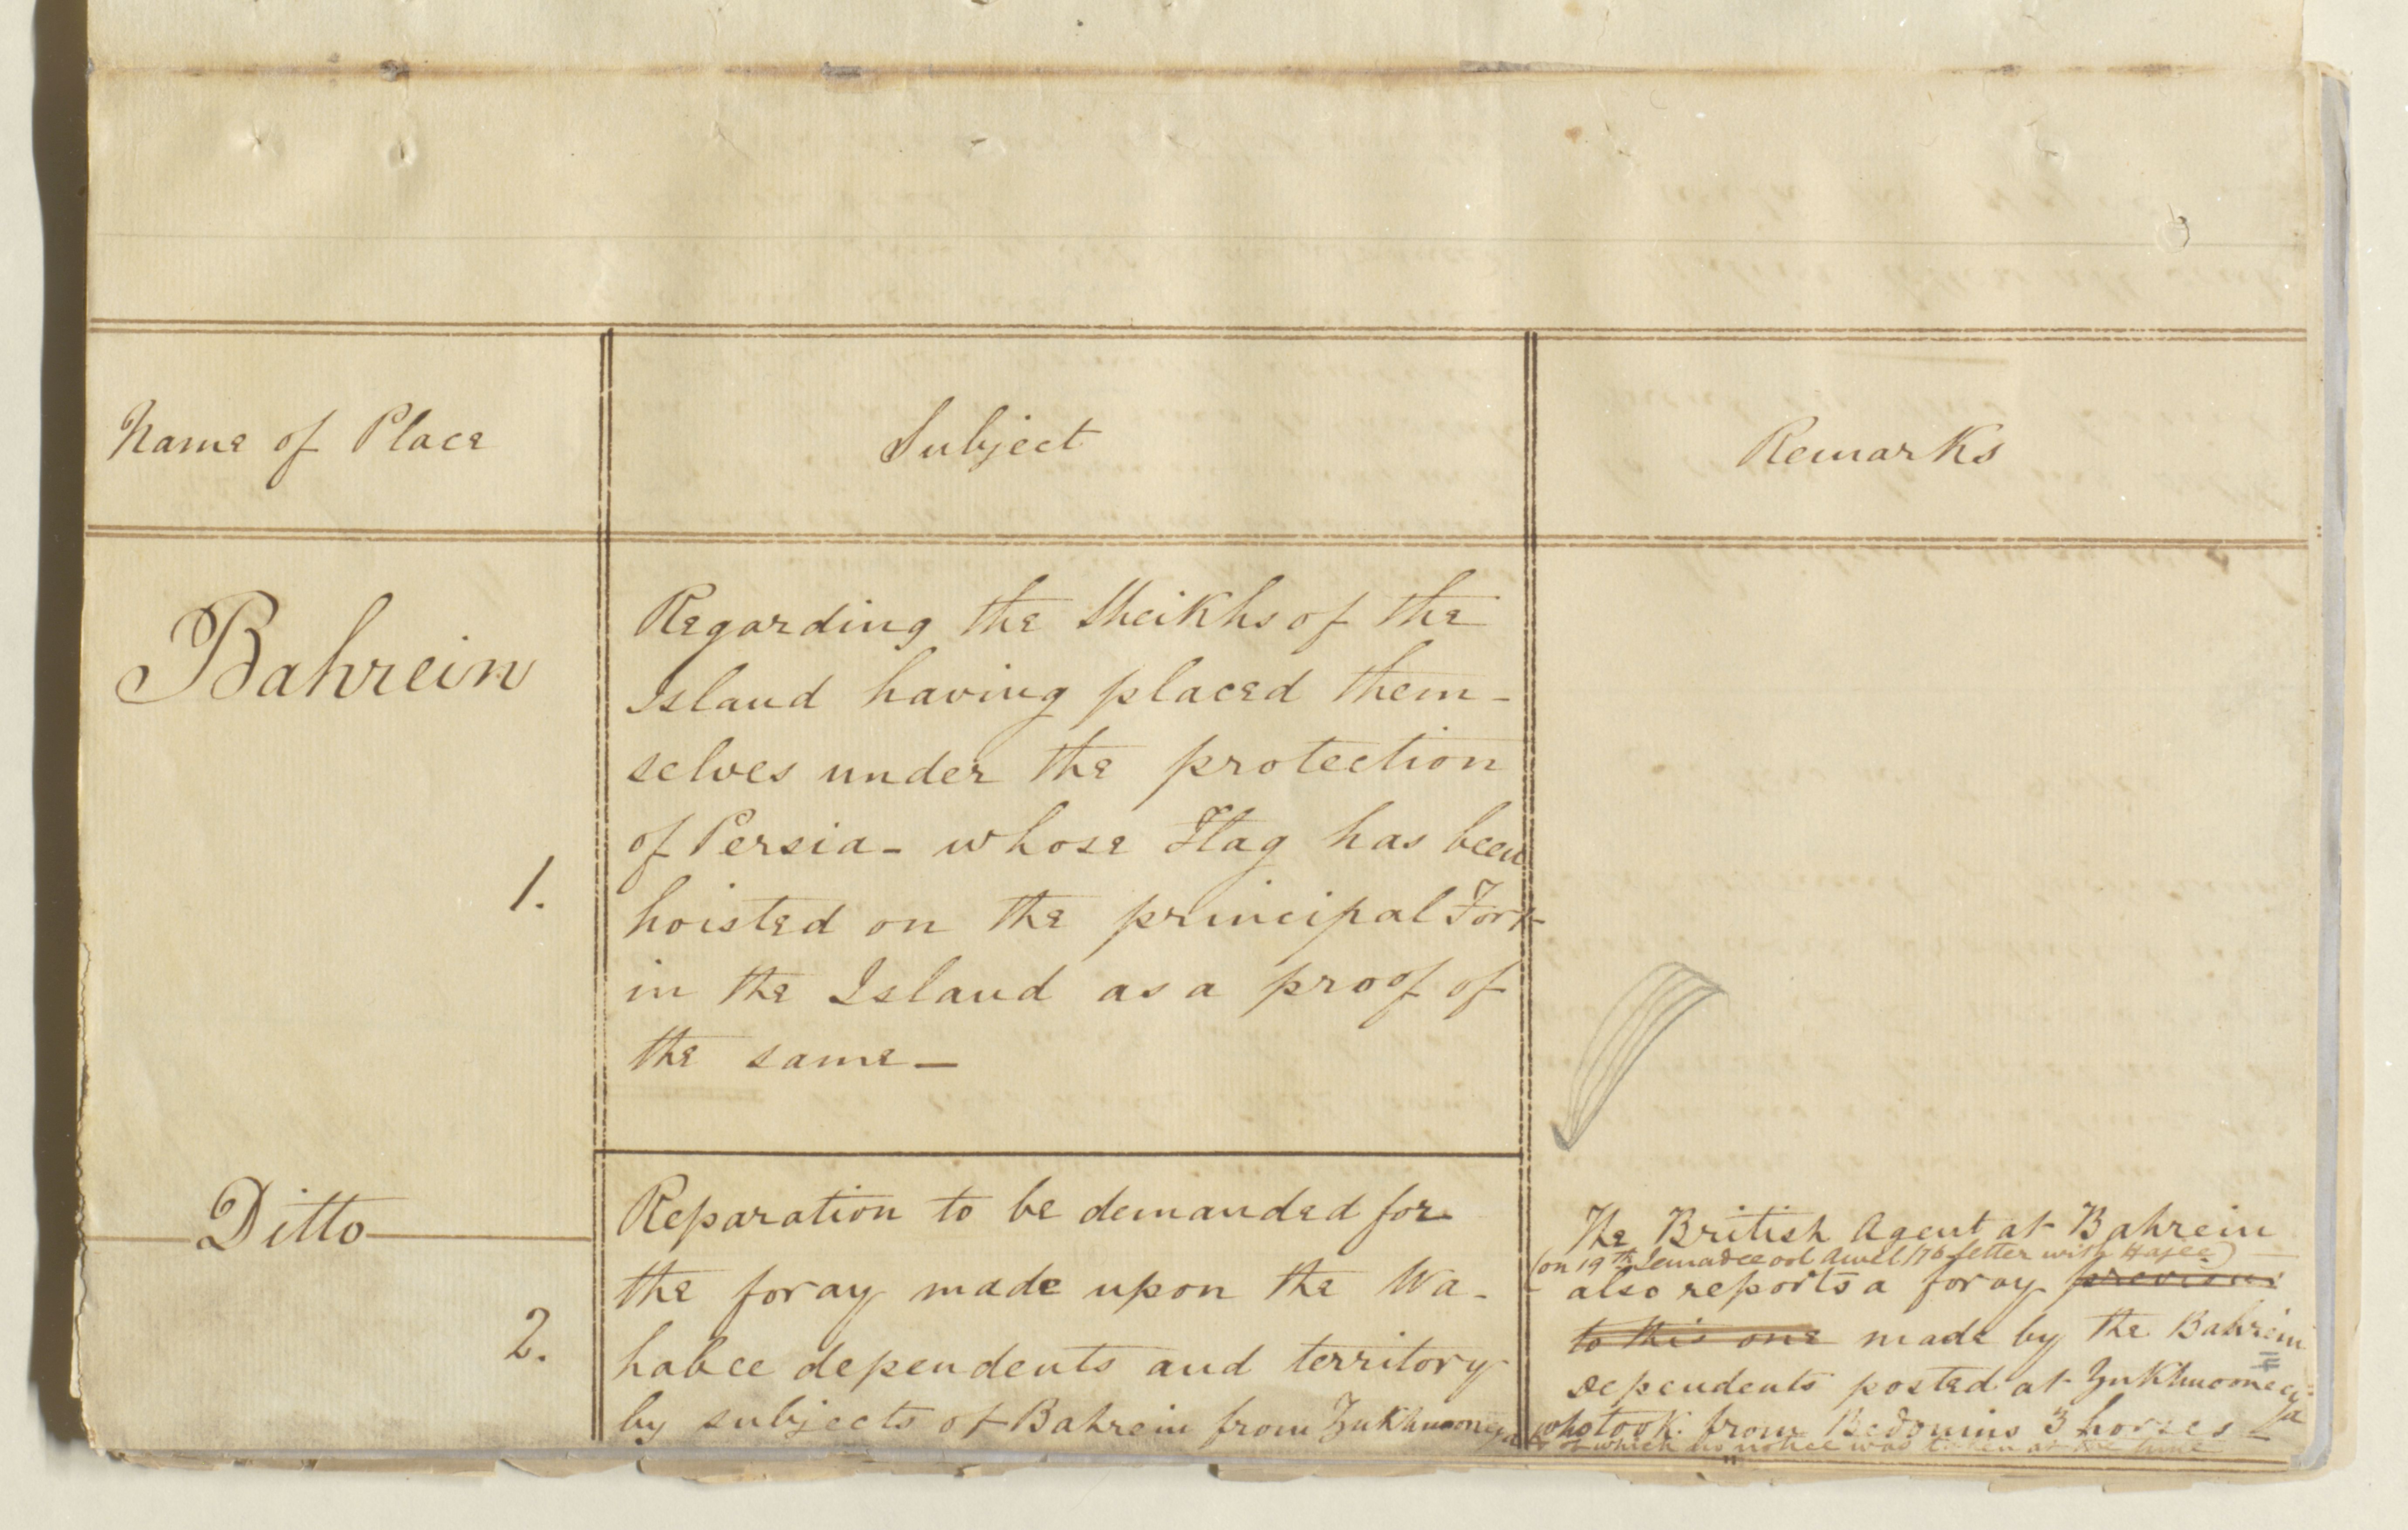 Name of Place
Subject
Remarks
Bahrein
1.
Regarding the Sheikhs of the
Island having placed them-
selves under the protection
of Persia - whose Flag has been
hoisted on the principal Fort
in the Island as a proof of
the same -
Ditto
2.
Reparation to be demanded for
the foray made upon the Wa-
habee dependents and territory
by subjects of Bahrein from Zukhnooneeya
The British Agent at Bahrein
(on 19th Jemadee ool Awel /76 letter with Hajee)
also reports a foray previous
to this one made by the Bahrein
dependents posted at Zukhnooneeya
who took from Bedouins 3 horses
of which no notice was taken at the time